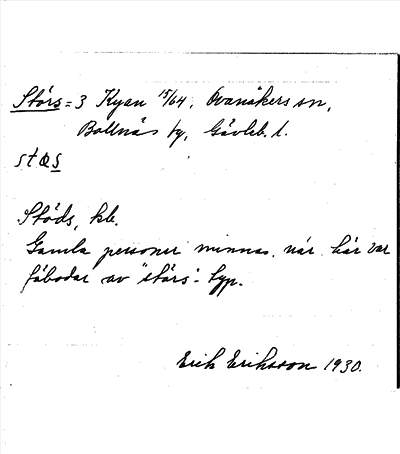 Störs = 3 Kyan 15/64, Ovanåkers sn,
Bollnäs fg, Gävleb. l.
stœs
Stöds, kb.
Gamla personer minnas, när här var
fäbodar av "störs"- typ.
Erik Eriksson 1930.